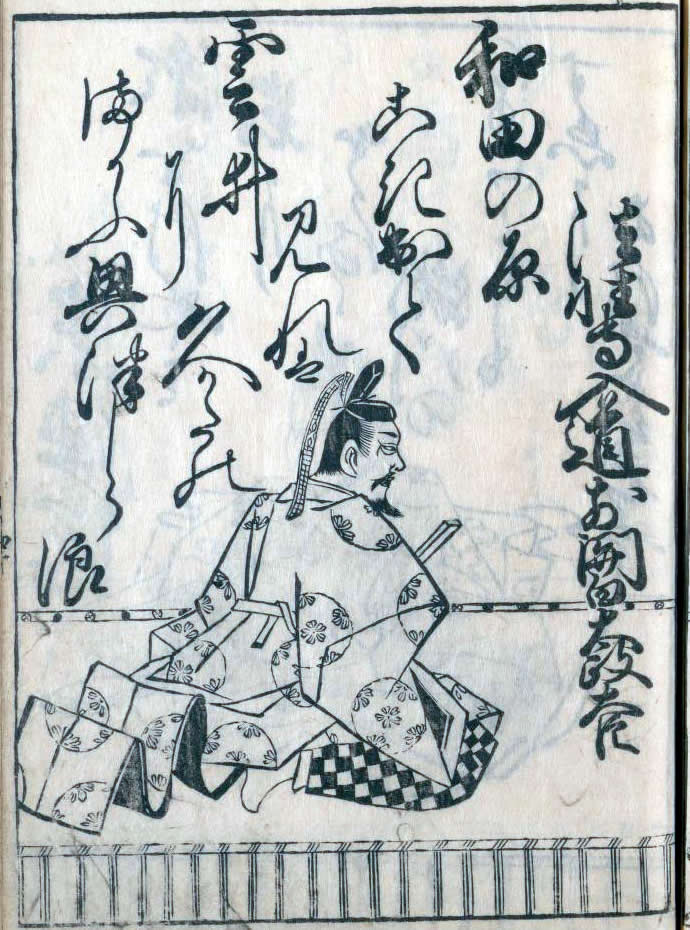 法性寺入道前関白太政大臣
和田の原
こき出て
見れは
久かたの
雲井
に
まかふ奥津しら
浪